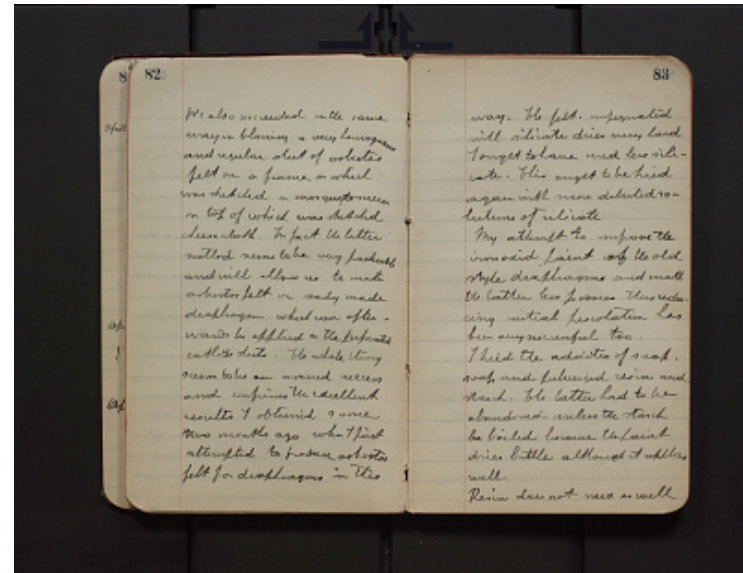 82
We also succeeded in the same
way in blowing a very homogeneous
and regular sheet of asbestos
felt on a frame on which
was stretched a mosquito screen
on top of which was stretched
cheese cloth. In fact the latter
method seems to be very practicable
and will allow us to make
asbestos felt or ready made
diaphragm which can after-
wards be applied on the perforated
cathode sheets. The whole thing
seems to be an assured success
and confirms the excellent
results I obtained some
two months ago when I first
attempted to produce asbestos
felt for diaphragms in this
83
way. The felt impregnated
with silicate dries very hard
I ought to have used less sili-
cate. This ought to be tried
again with more diluted so-
lutions of silicate
My attempt to improve the
iron oxid paint of the old
style diaphragms and make
the latter less porous thus redu-
cing initial percolation has
been very successful too.
I tried the addition of soap,
soap and pulverized resin and
starch. The latter had to be
abandoned unless the starch
be boiled because the paint
dries brittle although it applies
well.
Resin does not mix as well